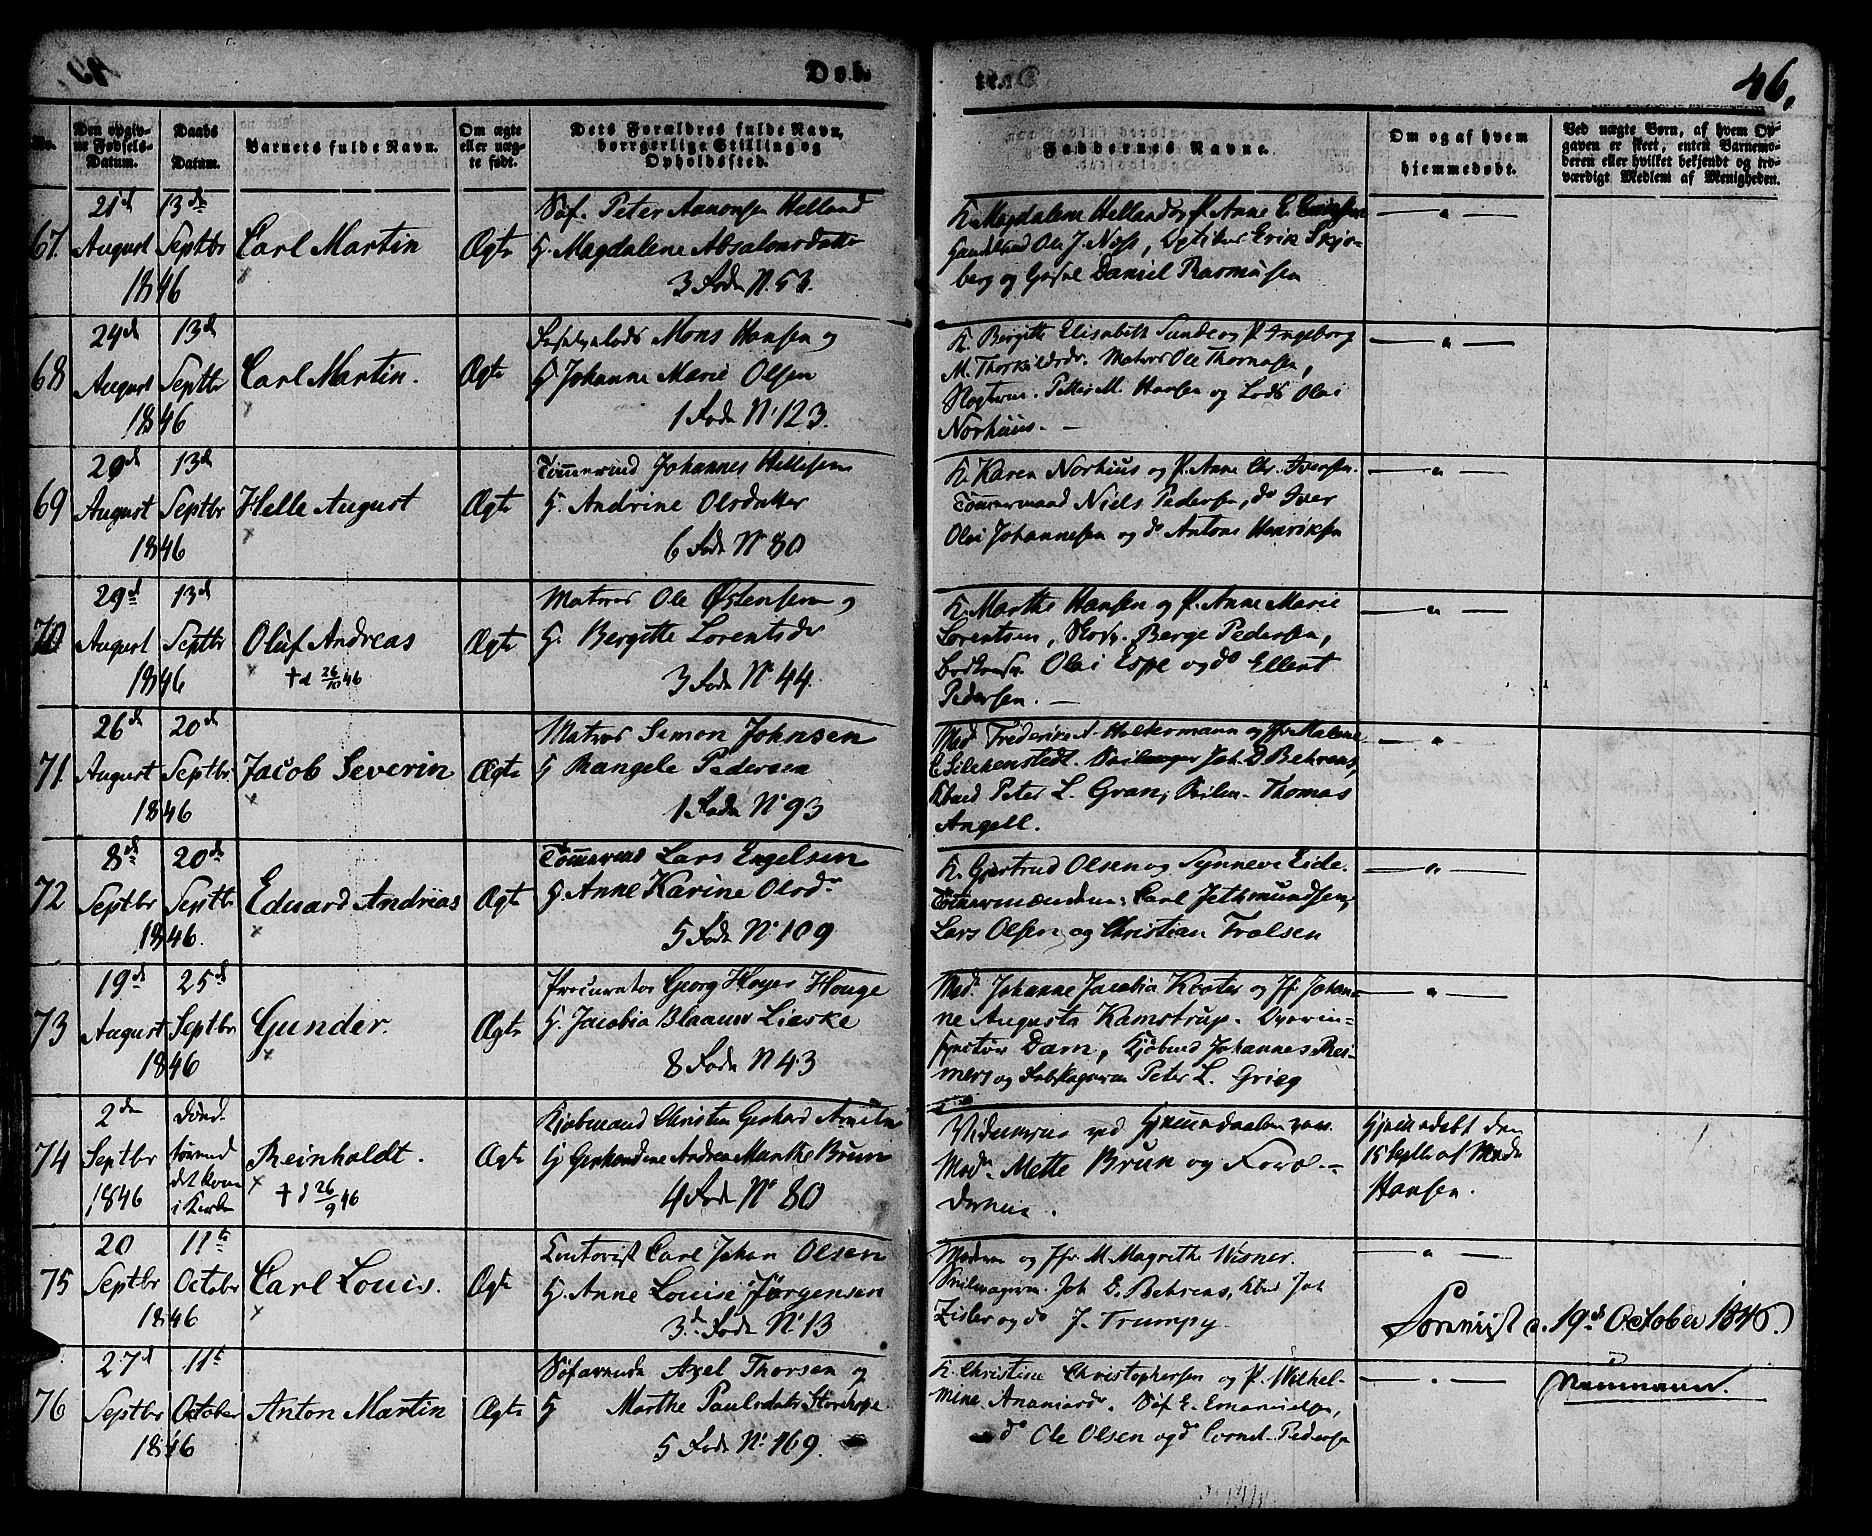 Døb-
46.
No.
Den opgiv-
ne Fødsels-
Datum.
Daabs
Datum.
Barnets fulde Navn.
Om ægte
eller uæg-
te født.
Dets Forældres fulde Navn,
borgerlige Stilling og
Opholdssted.
Faddernes Navne.
Om og af hvem
hjemmedøbt.
Ved uægte Børn, af hvem Op-
gaven er skeet, enten Barnemo-
deren eller hvilket bekjendt og tro-
værdigt Medlem af Menigheden.
67.
21d
August
1846
13de
Septbr
Carl Martin
Ægte
Søf. Peter Aanonsen Helland
H. Magdalene Absalonsdatter
3 Fode N. 53.
K. Magdalene Helland og P. Anne E.
Ole J. Næss, Optiker Erik Skjo-
berg og Daniel Rasmusen
68
24d
August
1846
13d
Septbr
Carl Martin.
Ægte
Mons Hansen og
H. Johanne Marie Olsen
1 Fode N. 123.
K. Bergitte Elisabeth Sunde og P. Ingeborg
M. Thorkildsdr. Matros Ole Thomasen,
Petter M. Hansen og Lods Olai
Norhuus. —
69
29d
August
1846
13d
Septbr
Helle August
Ægte
Tømmermd Johannes Hellesen
H. Andrine Olsdatter
6 Fode N. 80
K. Karen Norhuus og P. Anne Chr. Iversen.
Tømmermand Niels Pedersen, do Iver
Olai Johannesen og do Antone Henriksen
70
29d
August
1846
13d
Septbr
Oluf Andreas
† d 26/10 46
Ægte
Matros Ole Østensen og
H. Bergitte Lorentsdr
3 Fode N. 44.
K. Marthe Hansen og P. Anne Marie
Lorentsen, Berge Pedersen,
Olai Espe og do Ellert
Pedersen. —
71
26de
August
1846
20d
Septbr
Jacob Severin
Ægte
Matros Simon Johnsen
H Rangele Pedersen
1 Fode N. 93
Mad. Frederike A. Holtermann og Jfr Malene
E. Silchenstedt. Seilmager Joh. D. Behrens,
Peter L. Gran, Seilm. Thomas
Angell.
72
8de
Septbr
1846.
20de
Septbr
Eduard Andreas
Ægte
Tømmermd Lars Engelsen
H. Anne Karine Olsdr
5 Fode N. 109
K. Gjertrud Olsen og Synneve Eide.
Tømmermændene: Carl Jethmundsen,
Lars Olsen og Christian Troelsen
73
19d
August
1846
25d
Septbr
Gunder.
Ægte
Procurator Georg Høyer Houge
H. Jacobia Blaauw Lieske
8 Fode N 43
Madm Johanne Jacobia Krøter og Jfr Johan-
ne Augusta Kamstrup. Dyevin-
specteur Dam, Kjøbmd Johannes Rei-
mers og Peter L. Grieg
74
2de
Septbr
1846
Reinholdt.
† d 26/9 46
Ægte
Kjøbmand Christen Gerhard
H Andrea Marthe Brun
4 Fode N. 80
Vidnerne ved Hjemmedaaben vare
Madm. Mette Brun og Foræl-
drene.
Hjemmedøbt den
15 Septbr af Mada
Hansen.
75
20
Septbr
1846
11te
October
Carl Louis.
Ægte
Contorist Carl Johan Olsen
H. Anne Louise Jørgensen
3de Fode N. 13
Madm og Jfr M. Magrethe Wisner.
Seilmager Joh D. Behrens, Joh
Zisler og do J. Trumpy.
76
27d
Septbr
1846
11t
October
Anton Martin
Ægte
Søfarende Axel Thorsen og
H Marthe Paulsdatter
5 Fode N. 169.
K. Christine Christophersen og P. Wilhel-
mine Ananiasdr. Søf E. Emanuelsen,
do Ole Olsen og do Cornel. Pedersen
d. 19d October 1846.
Neumann.